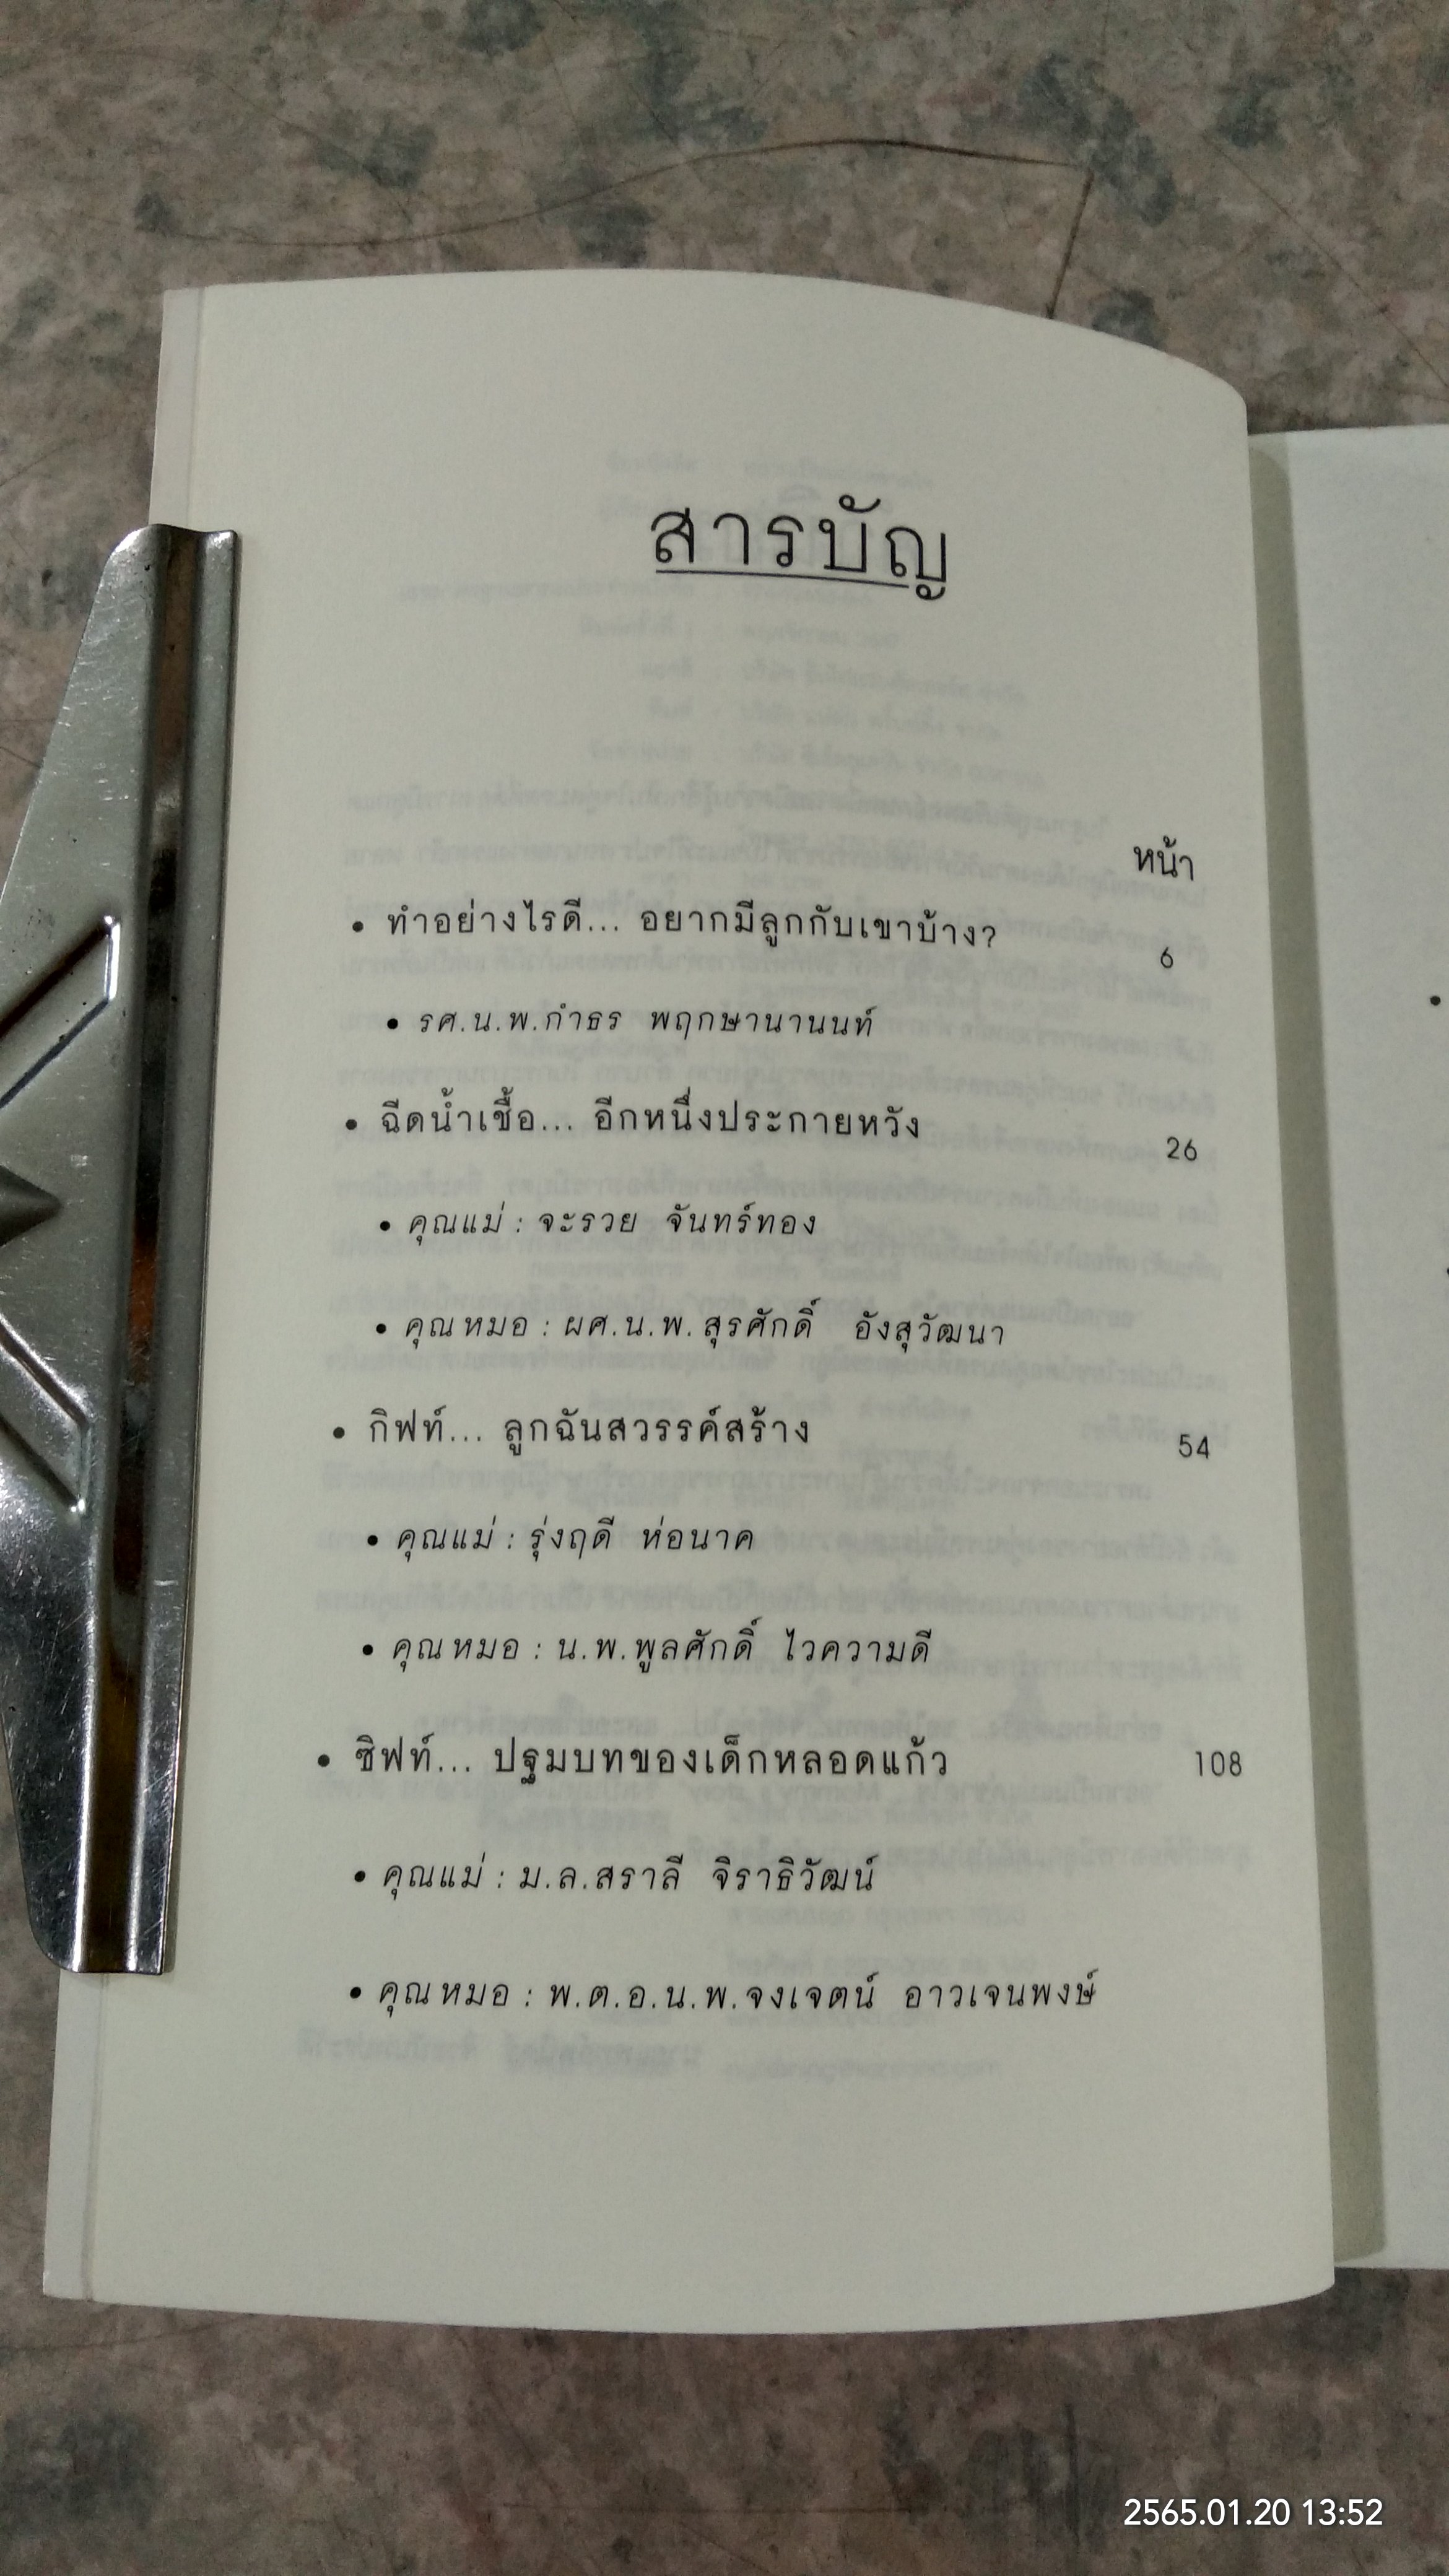 สารบัญ
หน้า
• ทำอย่างไรดี... อยากมีลูกกับเขาบ้าง? 6
• รศ.น.พ.กำธร พฤกษานานนท์
• ฉีดน้ำเชื้อ... อีกหนึ่งประกายหวัง 26
• คุณแม่ : จะรวย จันทร์ทอง
• คุณหมอ : ผศ.น.พ.สุรศักดิ์ อังสุวัฒนา
• กิฟท์... ลูกฉันสวรรค์สร้าง 54
• คุณแม่ : รุ่งฤดี ห่อนาค
• คุณหมอ : น.พ.พูลศักดิ์ ไวความดี
• ซิฟท์... ปฐมบทของเด็กหลอดแก้ว 108
• คุณแม่ : ม.ล.สราลี จิราธิวัฒน์
• คุณหมอ : พ.ต.อ.น.พ.จงเจตน์ อาวเจนพงษ์
2565.01.20 13:52